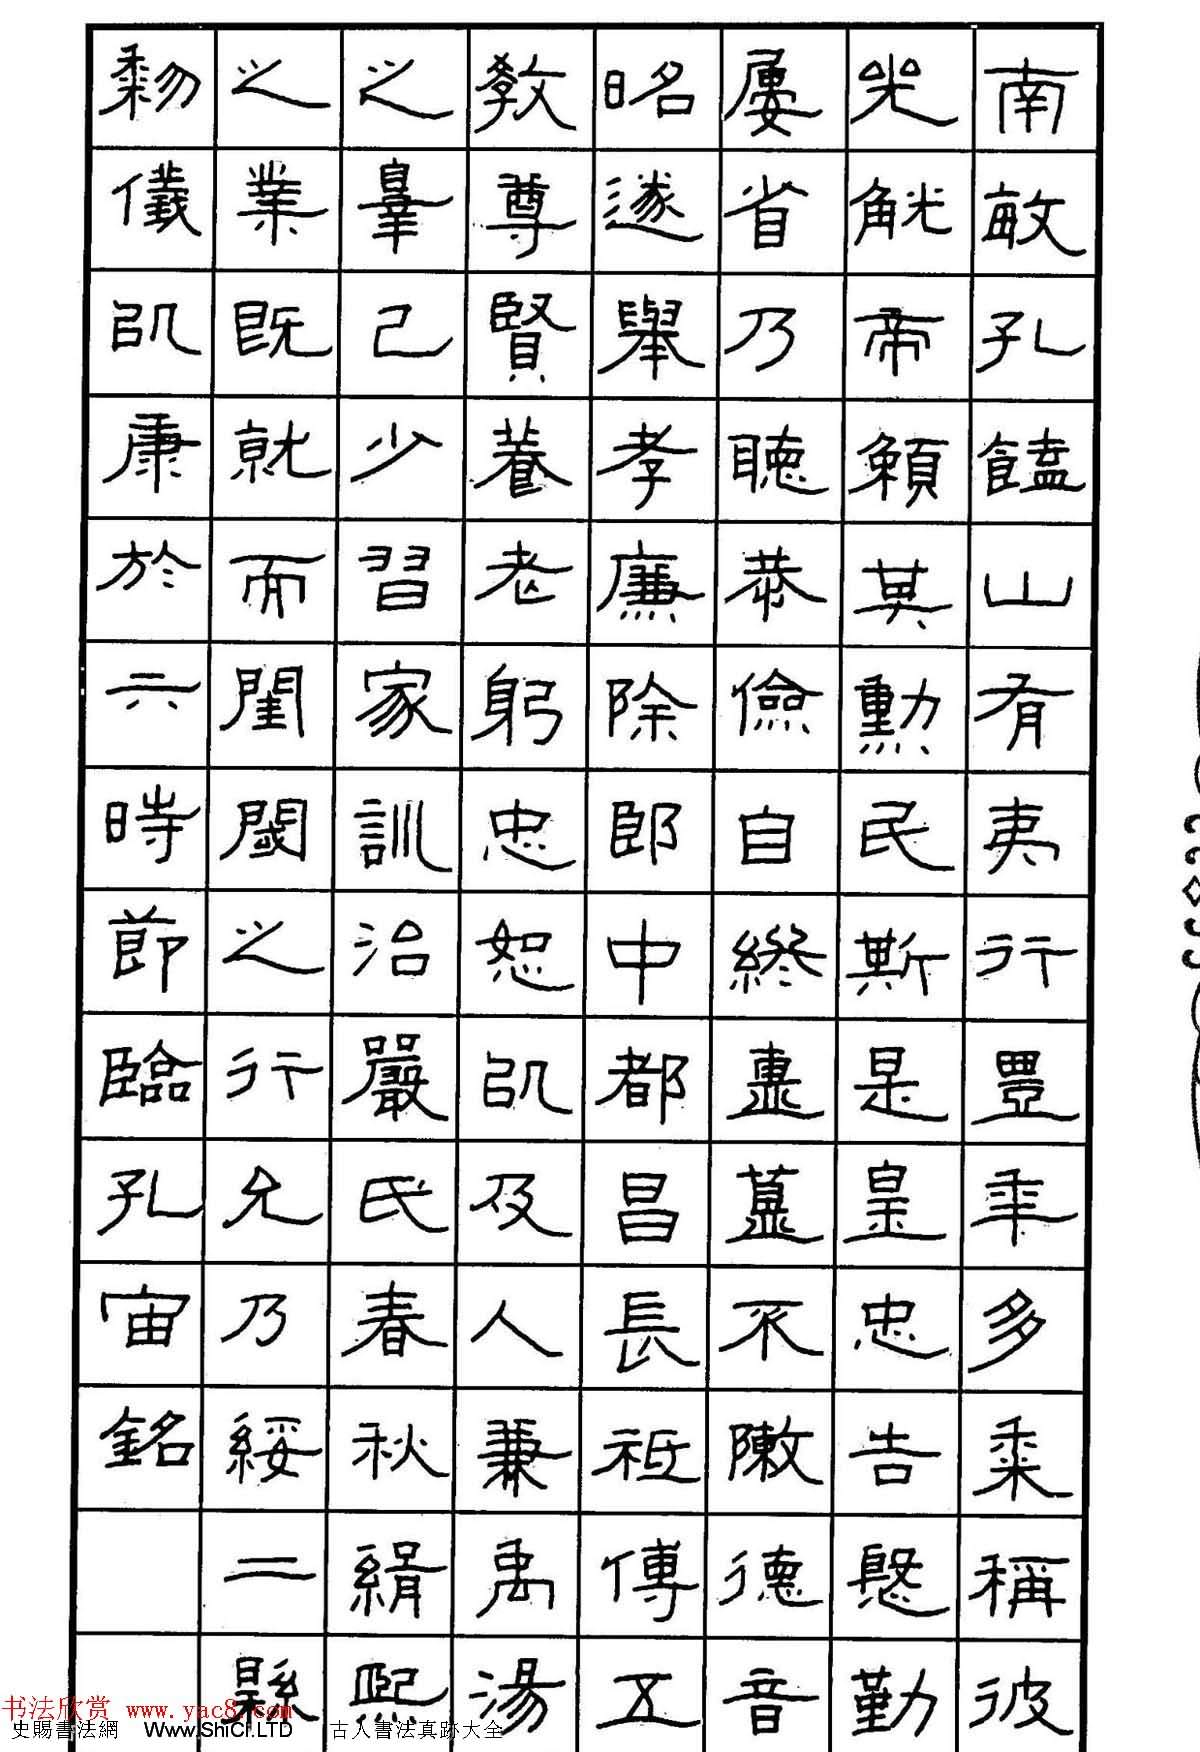 南畝孔饁山有夷行豐年多黍稱彼
兕觥帝賴其勳民斯是皇忠告慇勤
屢省乃聽恭儉自終簠簋不敶德音
昭遂舉孝廉除郎中都昌長祗傳五
教尊賢養老躬忠恕以及人兼禹湯
之辠己少習家訓治嚴氏春秋緝熙
之業既就而閨閾之行允乃綏二縣
黎儀以康於六時節臨孔宙銘
书法欣赏 www.yac8.com
史賜書法網 Www.ShiCi.LTD 古人書法真跡大全